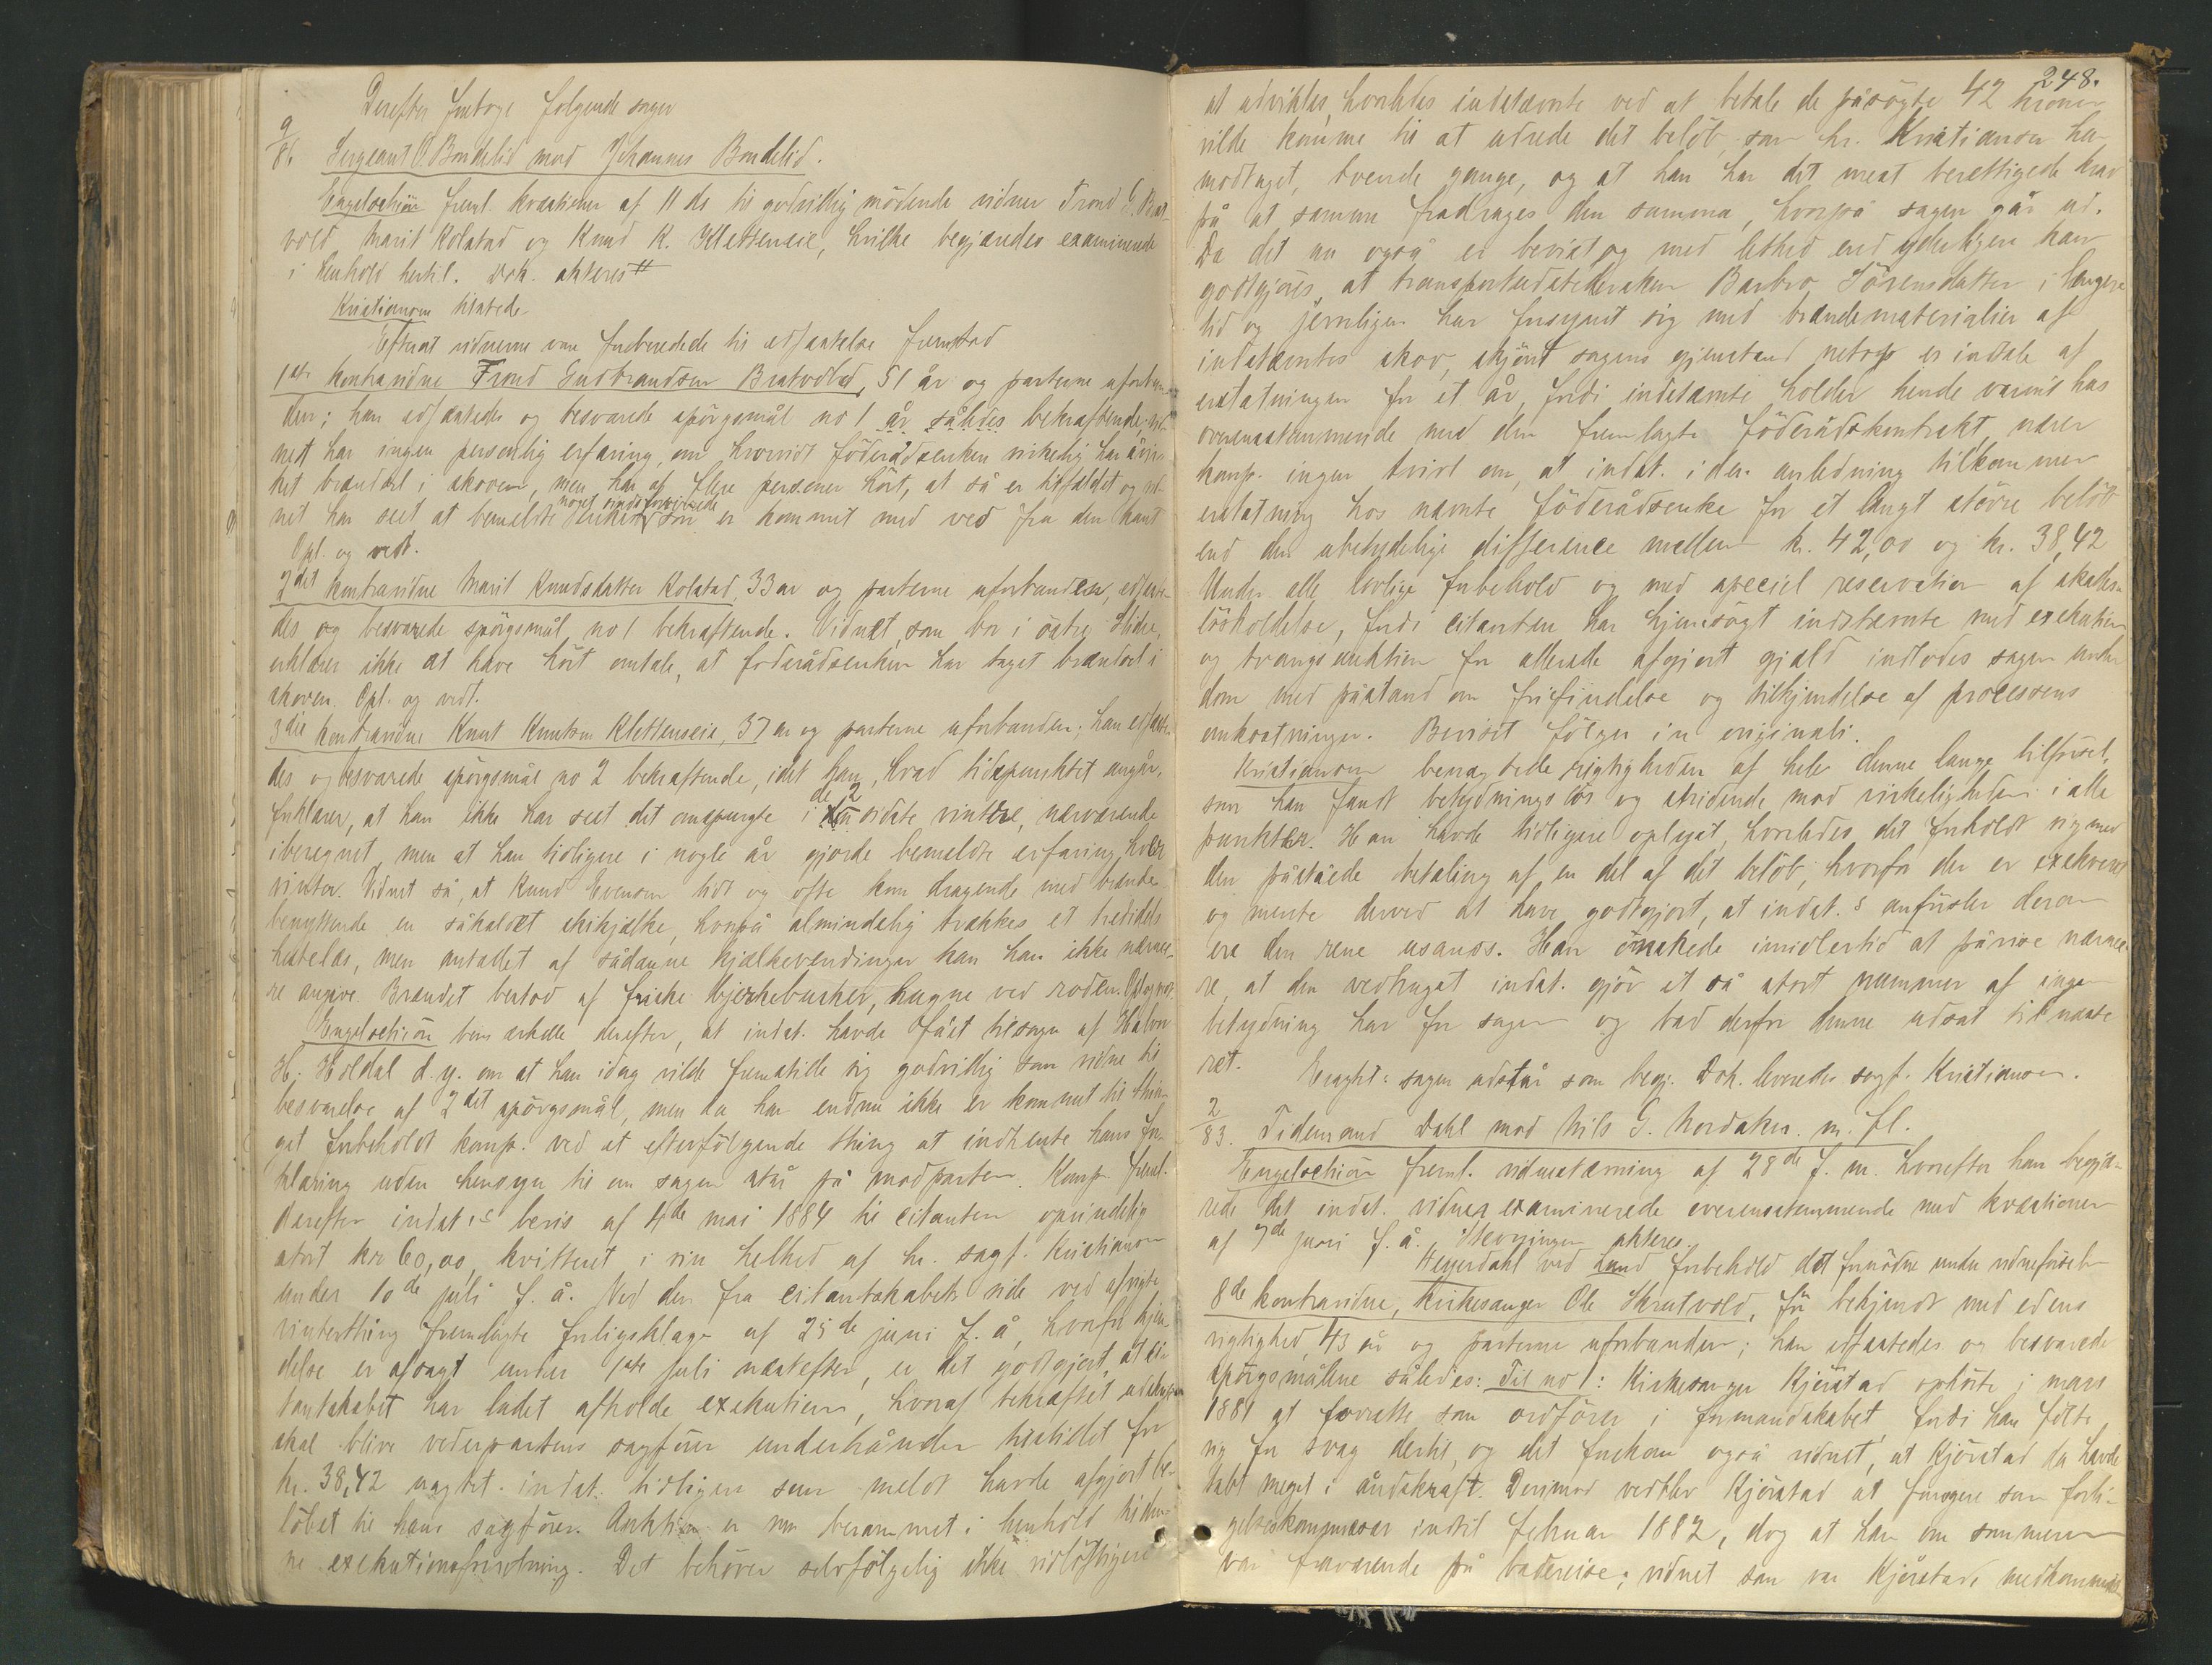 Derefter foretoges følgende sager
9/86. Sergeant O. Bondelid mod Johannes Bondelid.
Engelschiøn freml. kvæstioner af 11 ds til godvillig mødende vidner Trond G. Brat-
vold, Marit Kolstad og Knud K. Klettenseie, hvilke begjæredes examinerede
i henhold hertil. Dok. akteres
Kristiansen tilstede
Efterat vidnerne vare forberedede til edfæstelse fremstod
1ste kontravidne Trond Gudbrandsen Bratvold, 51 år og parterne uforbun-
den; han edfæstedes og besvarede spörgsmål no 1 år således bekræftende; vid-
net har ingen personlig erfaring, om hvorvidt föderådsenken virkelig har
ket brændsel i skoven, men har af flere personer hört, at så er tilfældet og vid-
net har seet at bemeldte enkes noget sindsforvirrede sön er kommet med ved fra den kant
Opl. og vedt.
2det kontravidne Marit Knudsdatter Kolstad, 33 år og parterne uforbunden, edfæste-
des og besvarede spörgsmål no 1 bekræftende. Vidnet, som bor i östre Slidre,
erklærer ikke at have hört omtale, at föderådsenken har taget brændsel i
skoven. Opl. og vedt.
3die kontravidne Knut Knutsen Klettenseie, 37 år og parterne uforbunden; han edfæste-
des og besvarede spörgsmål no 2 bekræftende, idet han, hvad tidspunktet angår,
forklarer, at han ikke har seet det omspurgte i de 2 sidste vintre, nærværende
iberegnet, men at han tidligere i nogle år gjorde bemeldte erfaring hver
vinter. Vidnet så, at Knud Evensen tidt og ofte kom dragende med brænde
benyttende en såkaldet skikjælke, hvorpå almindelig trækkes et trediedels
hestelæs, men antallet af sådanne kjælkevendinger kan han ikke nærme-
re angive. Brændet bestod af friske bjerkebusker, hugne ved roden. Opl. og vedt.
Engelschiön bemærkede derefter, at indst. havde fået tilsagn af Halvor
H. Holdal d. y. om at han idag vilde fremstille sig godvillig som vidne til
besvarelse af 2det spörgsmål, men da han endnu ikke er kommet til thin-
get forbeholdt komp. ved et efterfölgende thing at indhente hans for-
klaring uden hensyn til om sagen står på modparten. Komp. freml.
derefter indst.s bevis af 4de mai 1884 til citanten oprindelig
stort kr 60,00 kvitteret i sin helhed af hr. sagf. Kristiansen
under 10de juli f. å. Ved den fra citantskabets side ved afvigte
vinterthing fremlagte forligsklage af 25de juni f. å, hvorfor kjen-
delse er afsagt under 1ste juli næstefter, er det godtgjort, at ci-
tantskabet har ladet afholde exekution, hvoraf bekræftet udskrift
skal blive vederpartens sagförer underhånden tilstillet for
kr. 38,42 uagtet indst. tidligere som meldt havde afgjort be-
löbet til hans sagförer. Auktion er nu berammet i henhold til den-
ne exekutionsforretning. Det behöver selvfölgelig ikke vidlöftigere
248.
at udvikles, hvorledes indstævnte ved at betale de påsögte 42 kroner
vilde komme til at udrede det belöb, som hr. Kristiansen har
modtaget, tvende gange, og at han har det mest berettigede krav
på at samme fradrages den summa, hvorpå sagen går ud.
Da det nu også er bevist og med lethed end yderligere kan
godtgjöres, at transportudstedersken Barbro Sörensdatter i længere
tid og jevnligen har forsynet sig med brændematerialier af
indstævntes skov, skjönt sagens gjenstand netop er indtale af
erstatningen for et år, fordi indstævnte holder hende varmt hus
overensstemmende med den fremlagte föderådskontrakt, nærer
komp. ingen tvivl om, at indst. i den anledning tilkommer
erstatning hos nævnte föderådsenke for et langt större belöb
end den ubetydelige difference mellem kr. 42,00 og kr. 38,42
Under alle lovlige forbehold og med speciel reservation af skades-
lösholdelse, fordi citanten har hjemsögt indstævnte med exekution
og tvangsauktion for allerede afgjort gjæld indlodes sagen under
dom med påstand om frifindelse og tilkjendelse af processens
omkostninger. Beviset fölger in originali.
Kristiansen benægtede rigtigheden af hele denne lange tilförsel,
som han fandt betydningslös og stridende mod virkeligheden i alle
punkter. Han havde tidligere oplyst, hvorledes det forholdt sig med
den påståede betaling af en del af det belöb, hvorfor der er exekveret
og mente derved at have godtgjort, at indst.s anförsler derom
ere den rene usands. Han önskede imidlertid at påvise nærme-
re, at den vedtægt indst. gjör et så stort nummer af ingen
betydning har for sagen og bad derfor denne udsat til næste
ret. Eragtt: sagen udstår som begj. Dok. leveredes sagf. Kristiansen.
2/83. Tidemand Dahl mod Nils G. Nordaker m. fl.
Engelschiön freml. vidnestævning af 28de f. m. hvorefter han begjæ-
rede det indst. vidne examinerede overensstemmende med kvæstioner
af 7de juni f. å. Stevningen akteres.
Heyerdahl ved Lund forbeholdt det fornödne under vidneförselen
8de kontravidne, kirkesanger Ole Skrutvold, för bekjendt med edens
vigtighed, 43 år og parterne uforbunden; han edfæstedes og besvarede
spörgsmålene således: Til no 1: Kirkesanger Kjörstad ophörte i mars
1881 at forrette som ordförer i formandskabet, fordi han fölte
sig for svag dertil, og det forekom også vidnet, at Kjörstad da havde
tabt meget i åndskraft. Derimod vedblev Kjörstad at fungere som forli-
gelseskommissær indtil februar 1882, dog at han om sommeren
var fraværende på badereise; vidnet som var Kjörstads medkommis-